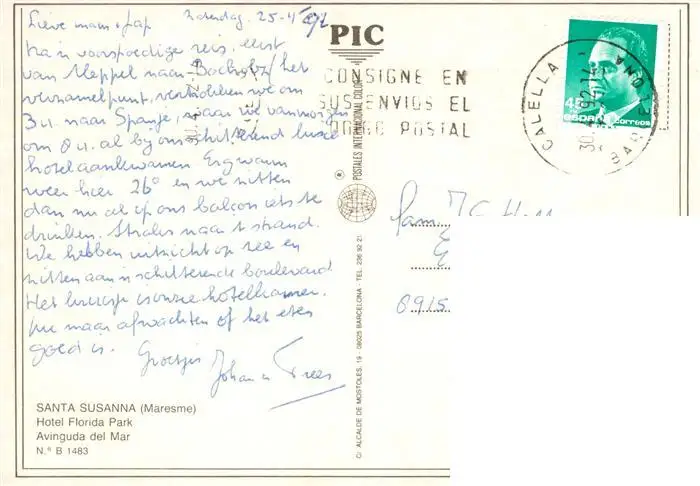 Lieve mam + pap Zaterdag. 25-4
Na 'n voorspoedige reis, eerst
van Meppel naar Bocholtz / het
verzamelpunt, vertrokken we om
3 u naar Spanje, waar we vanmorgen
om 8 u. al bij ons schitterend luxe
hotel aankwamen. Erg warm
weer hier 26° en we zitten
dan nu al op ons balcon iets te
drinken. Straks naar 't strand.
We hebben uitzicht op zee en
zitten aan 'n schitterende boulevard.
Het kruisje is onze hotelkamer.
Nu maar afwachten of het eten
goed is. Groetjes
Johan en Trees
SANTA SUSANNA (Maresme)
Hotel Florida Park
Avinguda del Mar
N.º B 1483
PIC
CONSIGNE EN
SUS ENVIOS EL
CODIGO POSTAL
POSTALES INTERNACIONAL COLOR
C/ ALCALDE DE MOSTOLES, 19 - 08025 BARCELONA - TEL. 236 92 21
ESPAÑA correos
CALELLA
Fam.